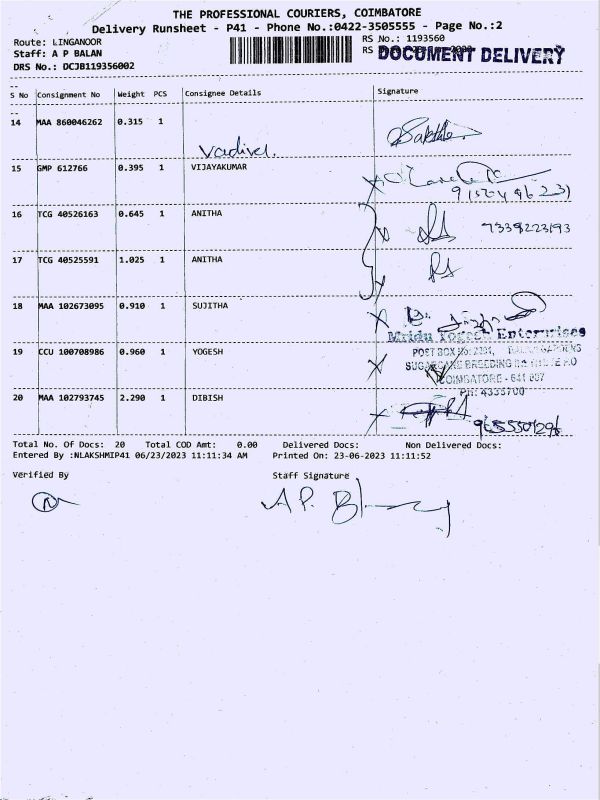 THE PROFESSIONAL COURIERS, COIMBATORE
Delivery Runsheet - P41 - Phone No.:0422-3505555 - Page No.:2
Route: LINGANOOR
RS No.: 1193560
Staff: A P BALAN
RS
DOCUMENT DELIVERY
DRS No.: DCJB119356002
S No Consignment No Weight PCS Consignee Details Signature
14 MAA 860046262 0.315 1
Vadivel.
15 GMP 612766 0.395 1 VIJAYAKUMAR
16 TCG 40526163 0.645 1 ANITHA
7339223193
17 TCG 40525591 1.025 1 ANITHA
18 MAA 102673095 0.910 1 SUJITHA
Mridu Yogesh Enterprises
19 CCU 100708986 0.960 1 YOGESH
POST BOX
SUGARCANE BREEDING
COIMBATORE - 641 007
20 MAA 102793745 2.290 1 DIBISH
PH: 4333700
Total No. Of Docs: 20 Total COD Amt: 0.00 Delivered Docs: Non Delivered Docs:
Entered By :NLAKSHMIP41 06/23/2023 11:11:34 AM Printed On: 23-06-2023 11:11:52
Verified By Staff Signature
A P. B